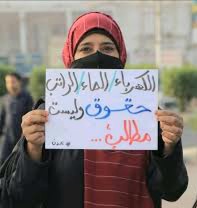 الكهرباء/الماء/الراتب
حقوق وليست
مطالب...